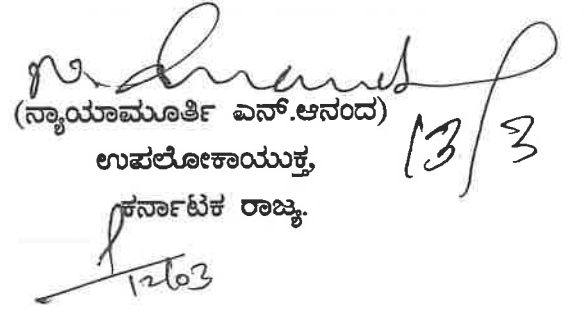 N. Anand
(ನ್ಯಾಯಾಮೂರ್ತಿ ಎನ್.ಆನಂದ)
13/3
ಉಪಲೋಕಾಯುಕ್ತ,
ಕರ್ನಾಟಕ ರಾಜ್ಯ.
12/03